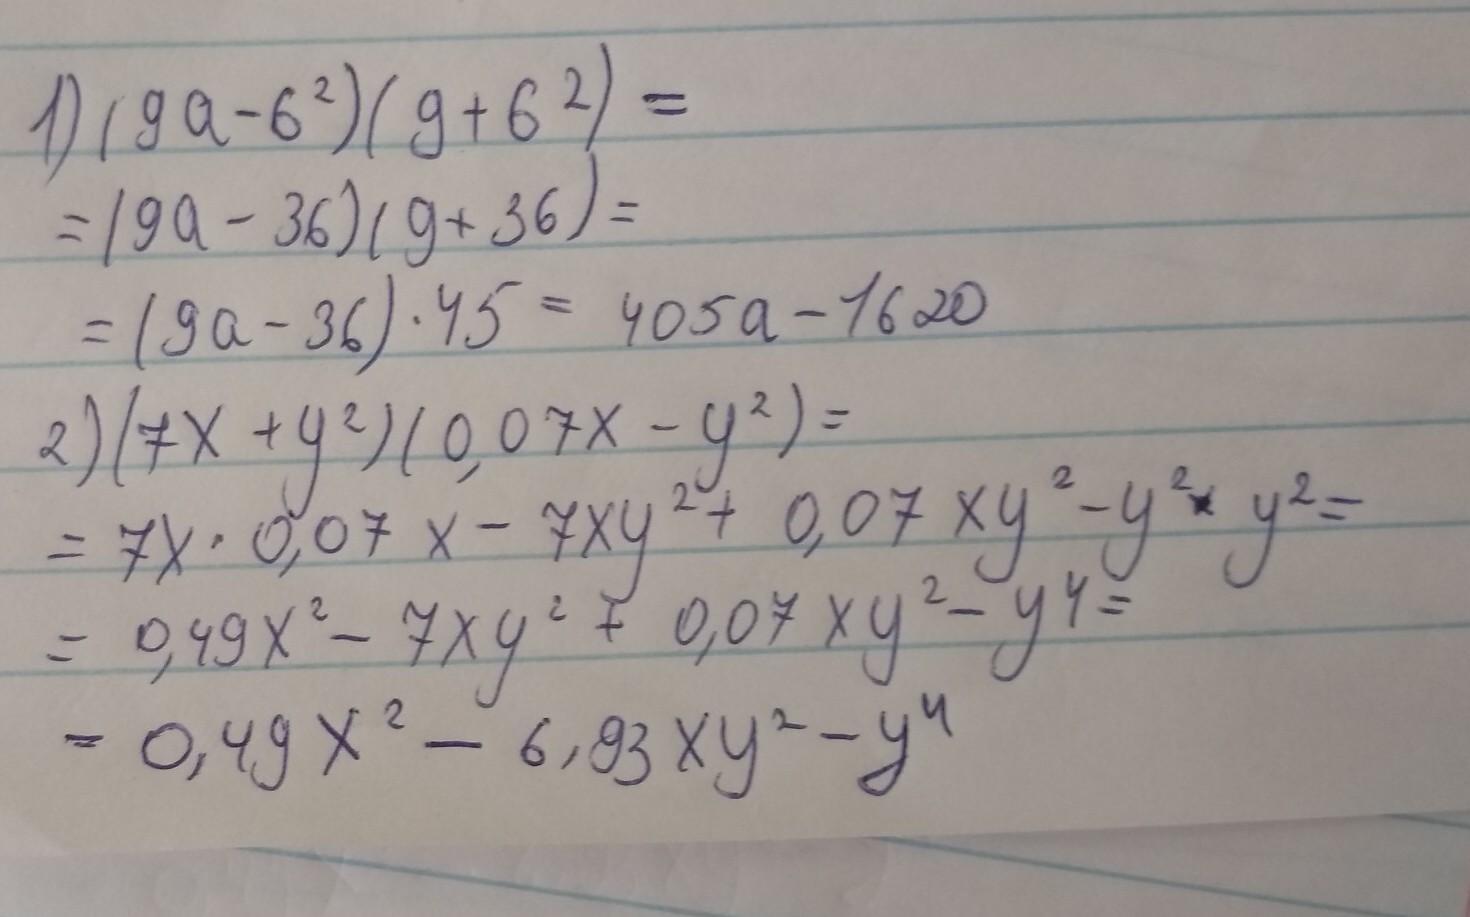 1) (9a-6²)(9+6²)=
=(9a-36)(9+36)=
=(9a-36)·45= 405a-1620
2) (7x+y²)(0,07x-y²)=
=7x·0,07x-7xy²+0,07xy²-y²·y²=
=0,49x²-7xy²+0,07xy²-y⁴=
=0,49x²-6,93xy²-y⁴